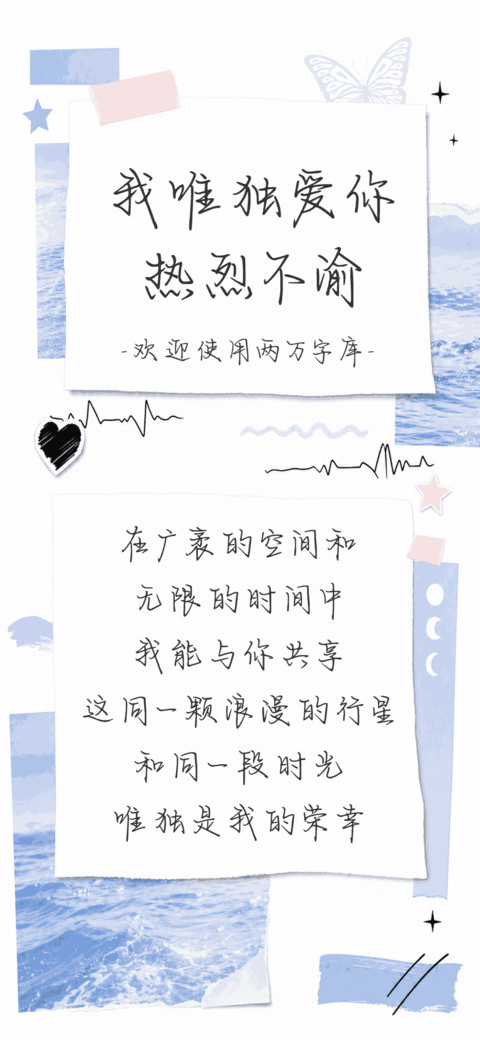 我唯独爱你
热烈不渝
-欢迎使用两万字库-
在广袤的空间和
无限的时间中
我能与你共享
这同一颗浪漫的行星
和同一段时光
唯独是我的荣幸